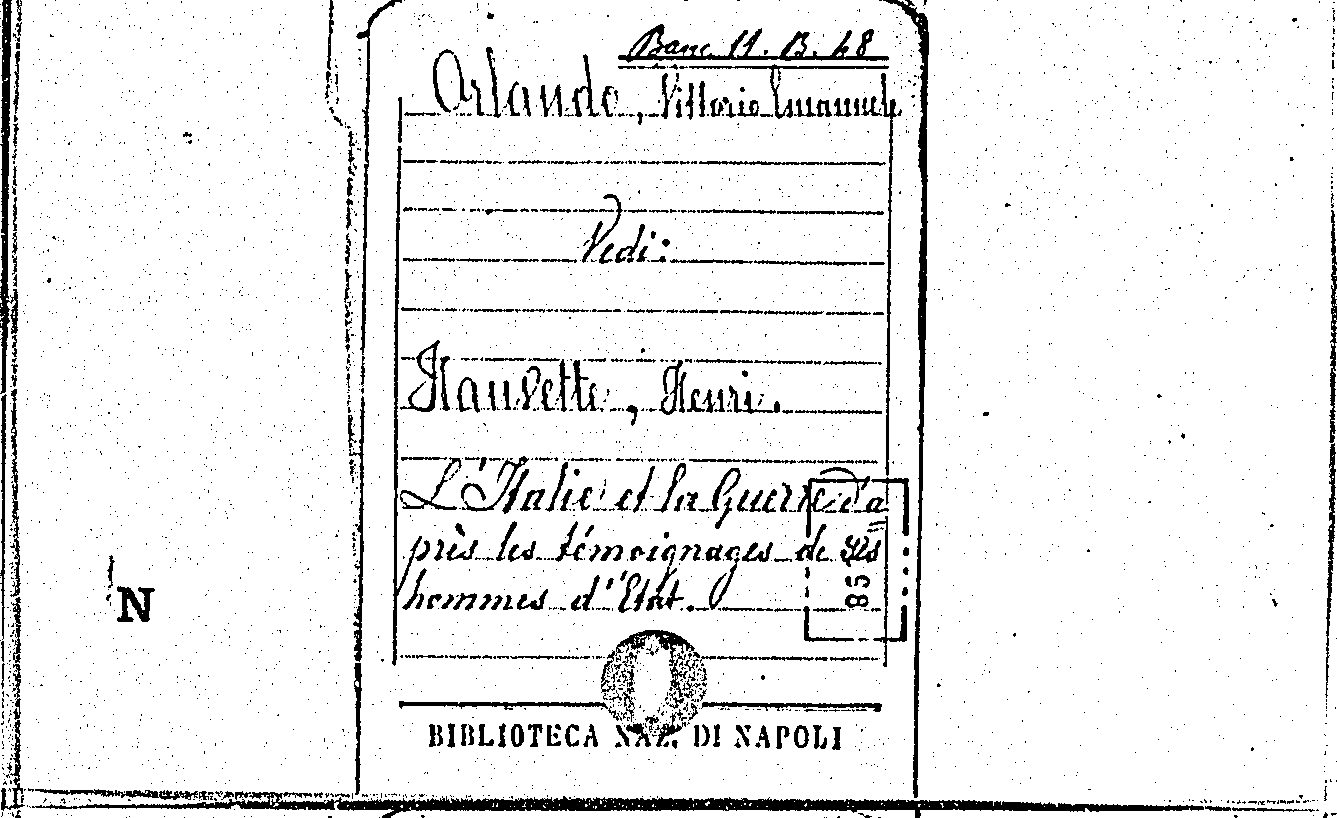 Banc. 11. B. 48
Orlando, Vittorio Emanuele
Vedi:
Hauvette, Henri.
L'Italie et la Guerre d'a
près les témoignages de ses
hommes d'Etat.
85
N
BIBLIOTECA NAZ. DI NAPOLI